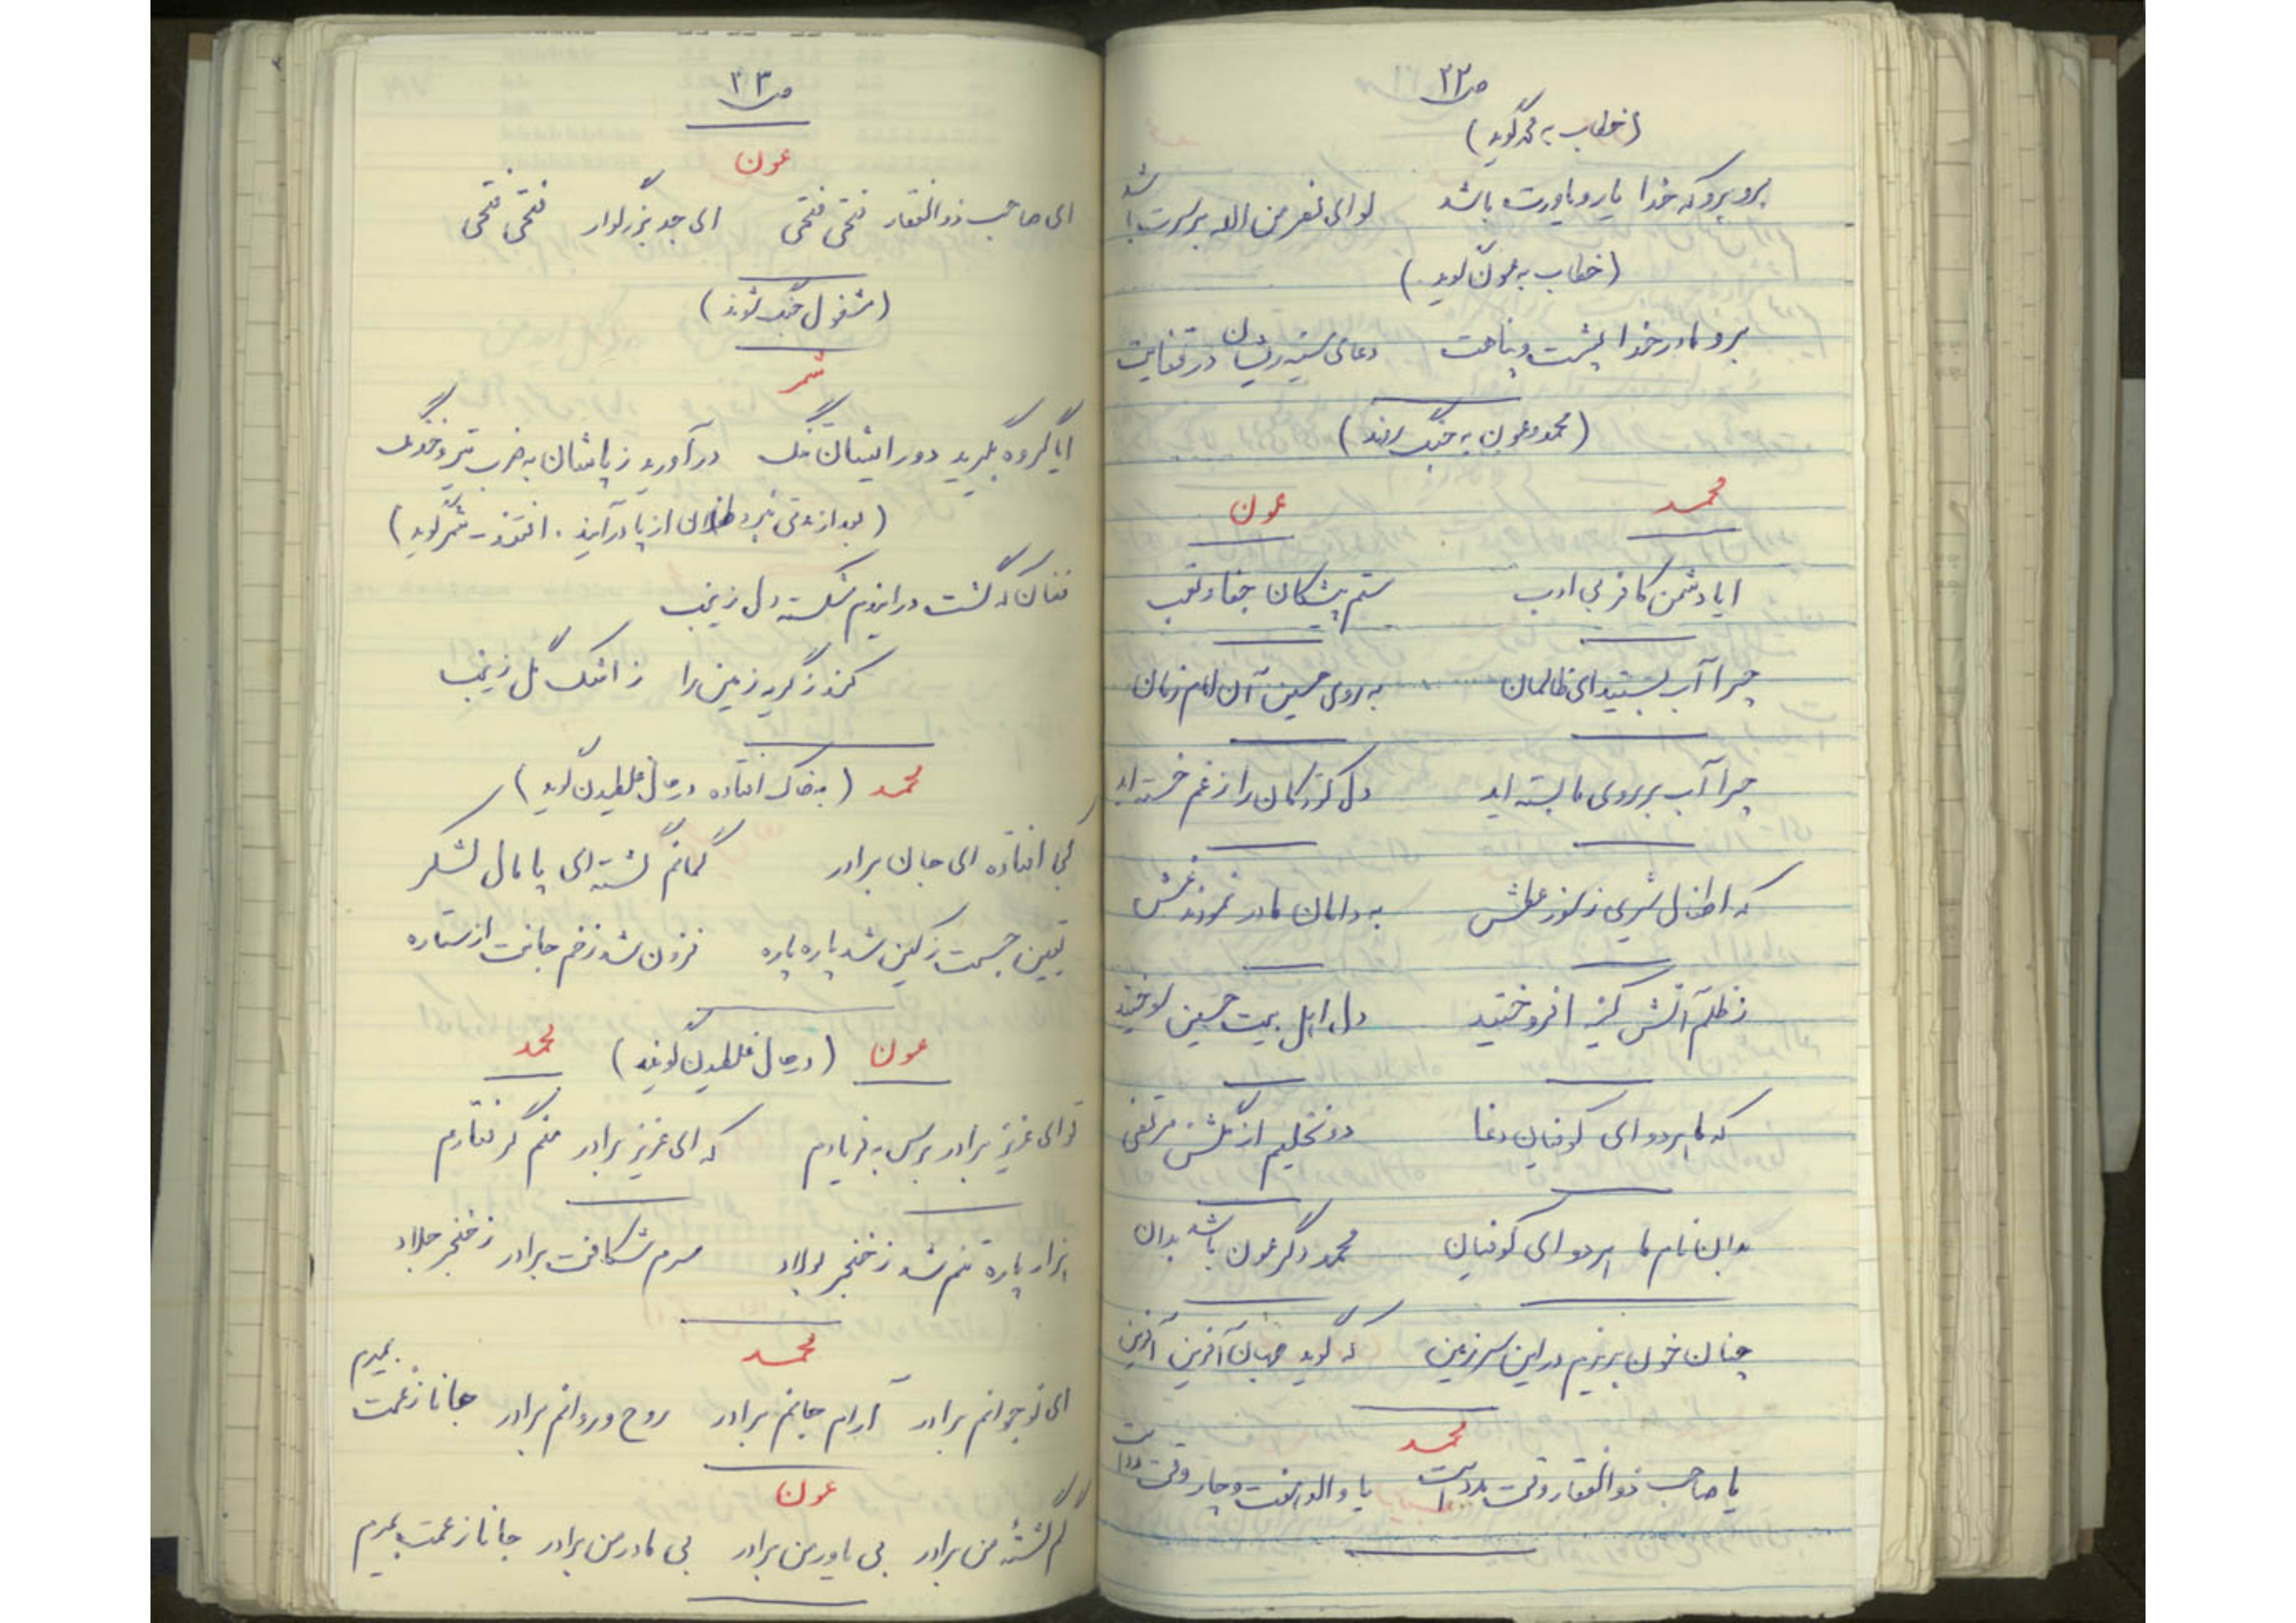 ص ۲۲
(خطاب به محمد گوید)
برو برو که خدا یار و یاورت باشد لوای نصر من الله بر سرت باشد
(خطاب به عون گوید)
برو مادر خدا پشت و پناهت دعای سینه ریشان در قفایت
(محمد و عون به جنگ روند)
محمد عون
ایا دشمن کافر بی ادب ستم پیشگان جفا و تعب
چرا آب بستید ای ظالمان به روی حسین آن امام زمان
چرا آب بر روی ما بسته اید دل کودکان را ز غم خسته اید
که اطفال شیری ز سوز عطش به دامان مادر نمودند غش
ز ظلم آتش کینه افروختید دل اهل بیت حسین سوختید
که ما هر دو ای کوفیان دغا دو نخلیم از گلشن مرتضی
بدان نام ما هر دو ای کوفیان محمد دگر عون باشد بدان
چنان خون بریزم در این سرزمین که گوید جهان آفرین آفرین
محمد
یا صاحب ذوالفقار وقت مدد است یا والد هفت و چار وقت مدد است
ص ۲۳
عون
ای صاحب ذوالفقار فتحی فتحی ای جد بزرگوار فتحی فتحی
(مشغول جنگ شوند)
شمر
ایا گروه بگیرید دور ایشان تنگ درآورید ز پاشان به ضرب تیر و خدنگ
(بعد از مدتی نبرد طفلان از پا درآیند. افتند - شمر گوید)
فغان که گشت در ایندم شکسته دل زینب
کند ز گریه زمین را ز اشک گل زینب
محمد (به خاک افتاده در حال غلطیدن گوید)
کجا افتاده ای جان برادر گمانم گشته ای پامال لشکر
ببین جسمت ز کین شد پاره پاره فزون شد زخم جانت از ستاره
عون (در حال غلطیدن گویند) محمد
تو ای عزیز برادر برس به فریادم که ای عزیز برادر منم گرفتارم
هزار پاره تنم شد ز خنجر فولاد سرم شکافت برادر ز خنجر جلاد
محمد
ای نوجوانم برادر آرام جانم برادر روح و روانم برادر جانا ز غمت بمیرم
عون
گم گشته من برادر بی یاور من برادر بی مادر من برادر جانا ز غمت بمیرم